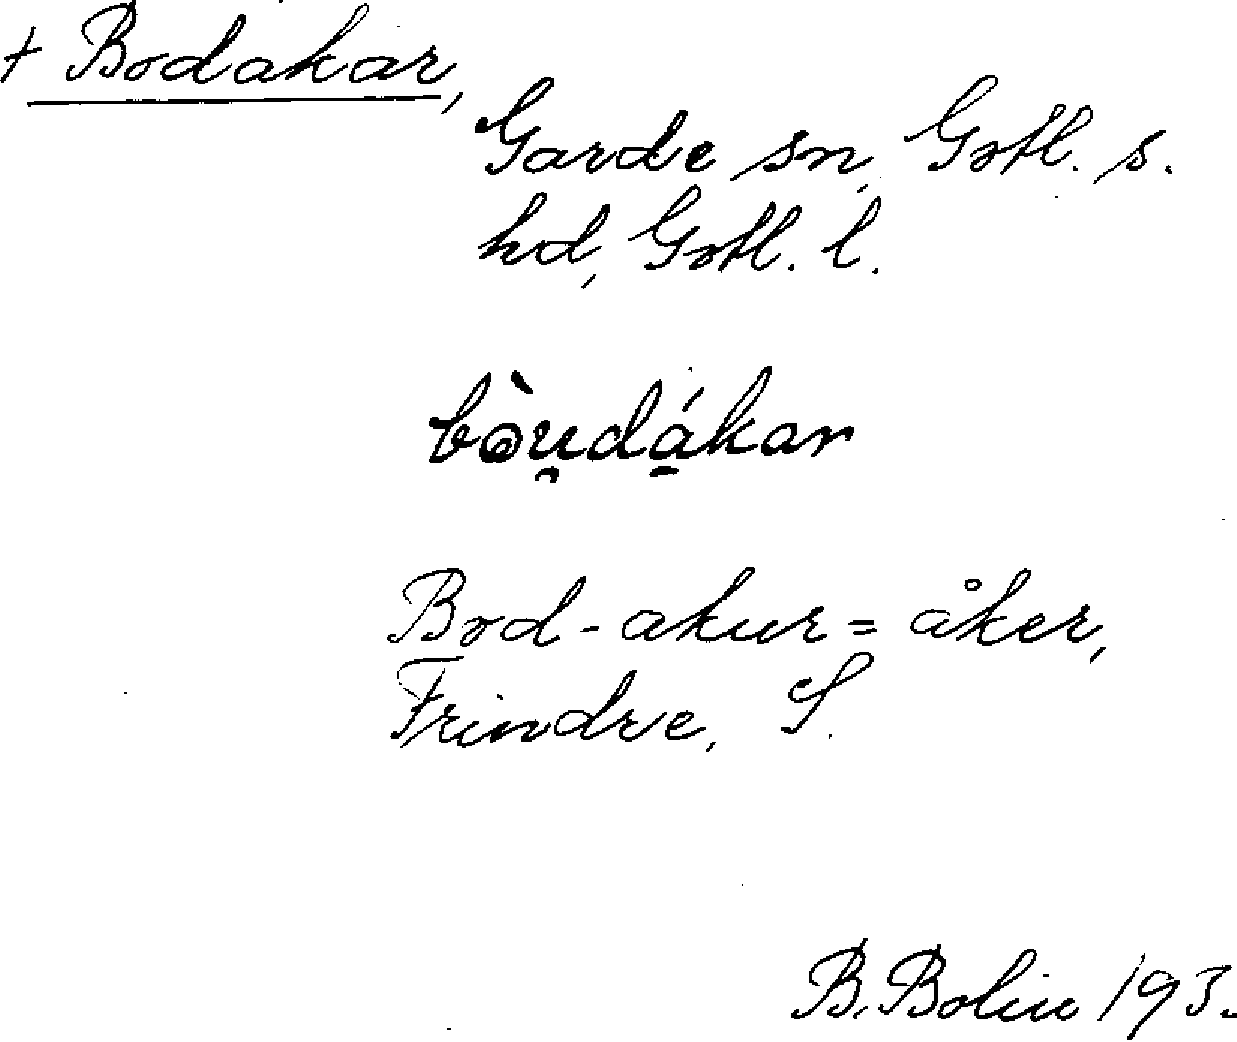 + Bodakar,
Garde sn, Gotl. s.
hd, Gotl. l.
bòu̯dá̱kar
Bod-akur = åker,
Frindre, S.
B. Bolin 193.